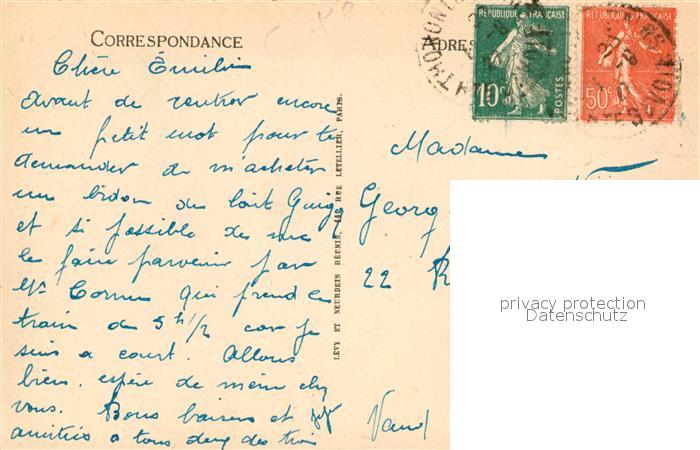 CORRESPONDANCE
ADRES
RÉPUBLIQUE FRANÇAISE
10c
POSTES
RÉPUBLIQUE FRANÇAISE
50c
Chère Émilie
Avant de rentrer encore
un petit mot pour te
demander de m'acheter
un bidon de lait Guigoz
et si possible de me
le faire parvenir par
Mr Cornu qui prend le
train de 5h1/2 car je
suis a court. Allons
bien, espère de même chez
vous. Bons baisers et
amitiés a tous deux des trois
LÉVY ET NEURDEIN RÉUNIS, 44, RUE LETELLIER, PARIS.
Madame
Georg
22 R
privacy protection
Datenschutz